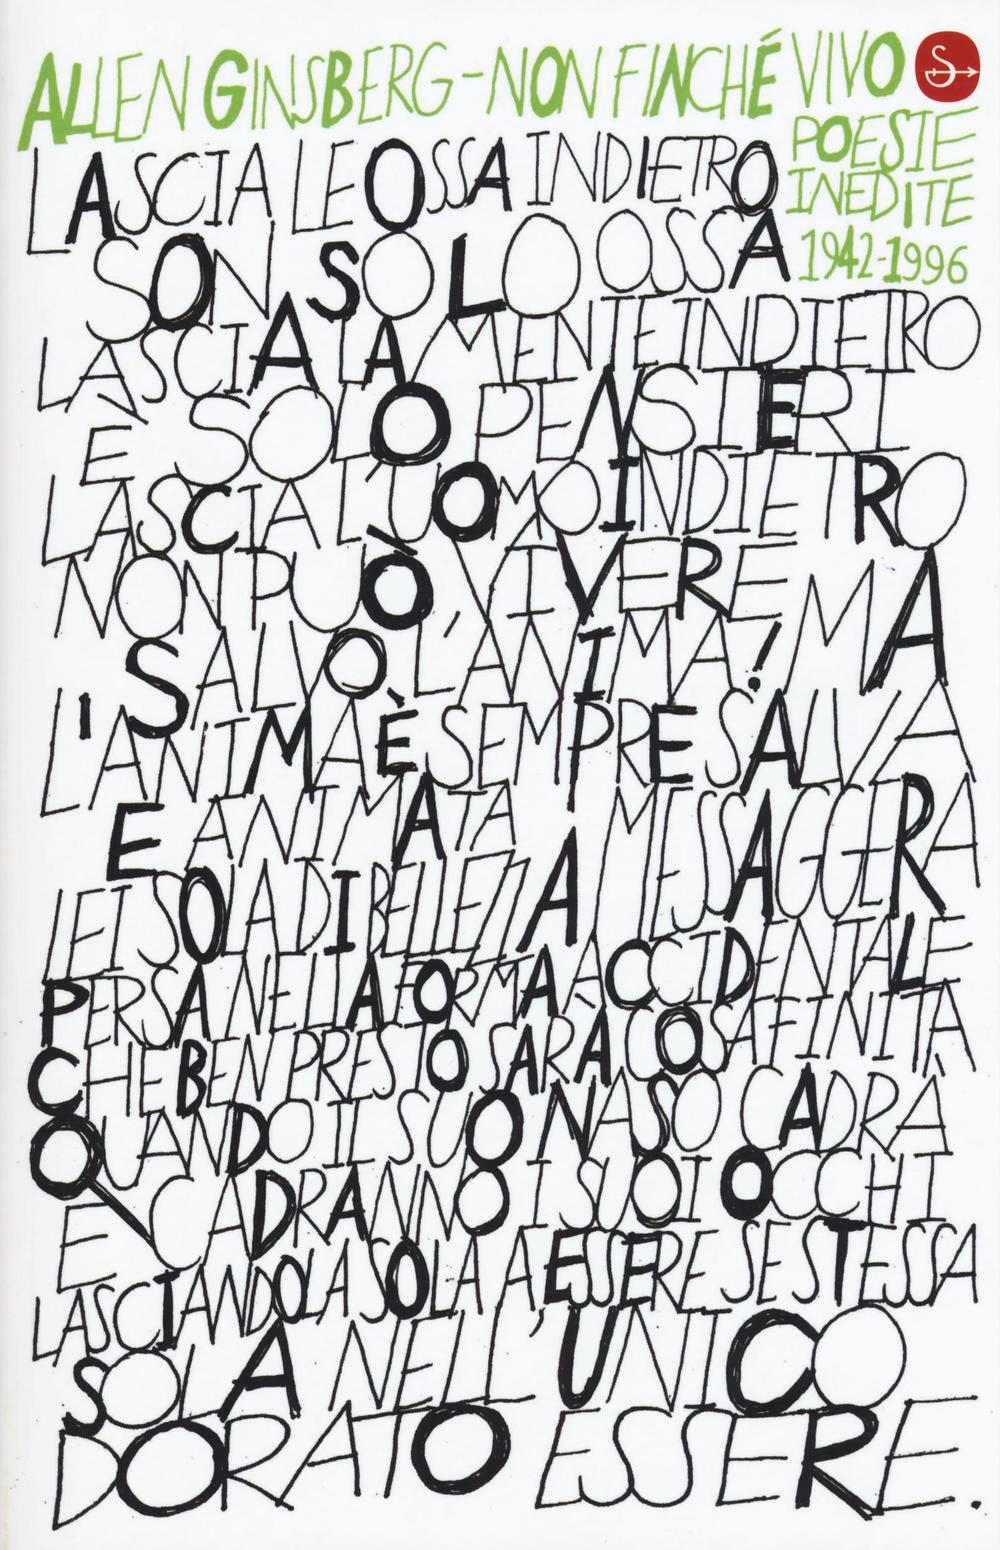 ALLEN GINSBERG - NON FINCHÉ VIVO
POESIE
INEDITE
1942-1996
LASCIA LE OSSA INDIETRO
SON SOLO OSSA
LASCIA LA MENTE INDIETRO
È SOLO PENSIERI
LASCIA L'UOMO INDIETRO
NON PUÒ VIVERE MA
SALVO L'ANIMA!
L'ANIMA È SEMPRE SALVA
E ANIMATA MESSAGGERA
LEI SOLA DI BELLEZZA
PERSA NELLA FORMA ACCIDENTALE
CHE BEN PRESTO SARÀ COSA FINITA
QUANDO IL SUO NASO CADRÀ
E CADRANNO I SUOI OCCHI
LASCIANDOLA SOLA A ESSERE SE STESSA
SOLA NELL'UNICO
DORATO ESSERE.